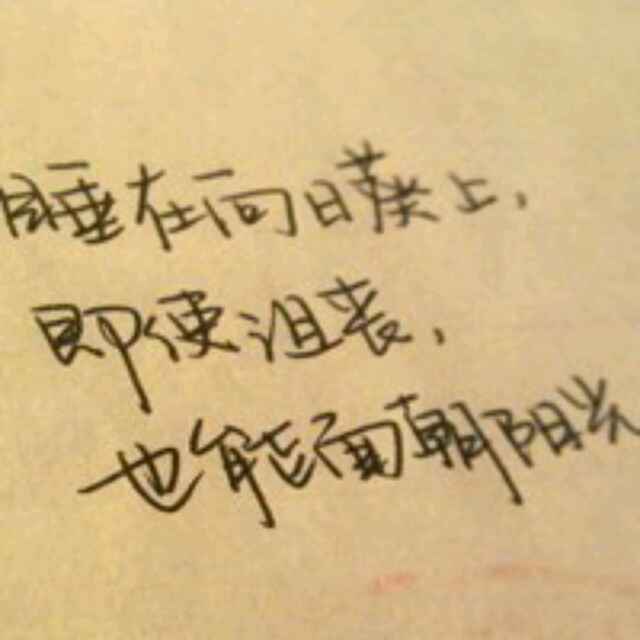 睡在向日葵上,
即便沮丧,
也能面朝阳光